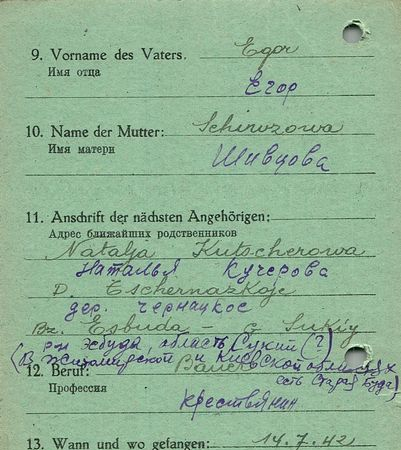 9. Vorname des Vaters. Egor
Имя отца
Егор
10. Name der Mutter: Schiwzowa
Имя матери
Шивцова
11. Anschrift der nächsten Angehörigen:
Адрес ближайших родственников
Natalja Kutscherowa
Наталья Кучерова
D. Tschernazkoje
дер. Чернацкое
Bz. Esbuda - G. Sukiy
р-н Эсбуда, область Сукий (?)
(В Житомирской и Киевской областях
12. Beruf: Bauer
есть Старая Буда)
Профессия
крестьянин
13. Wann und wo gefangen: 14.7.42